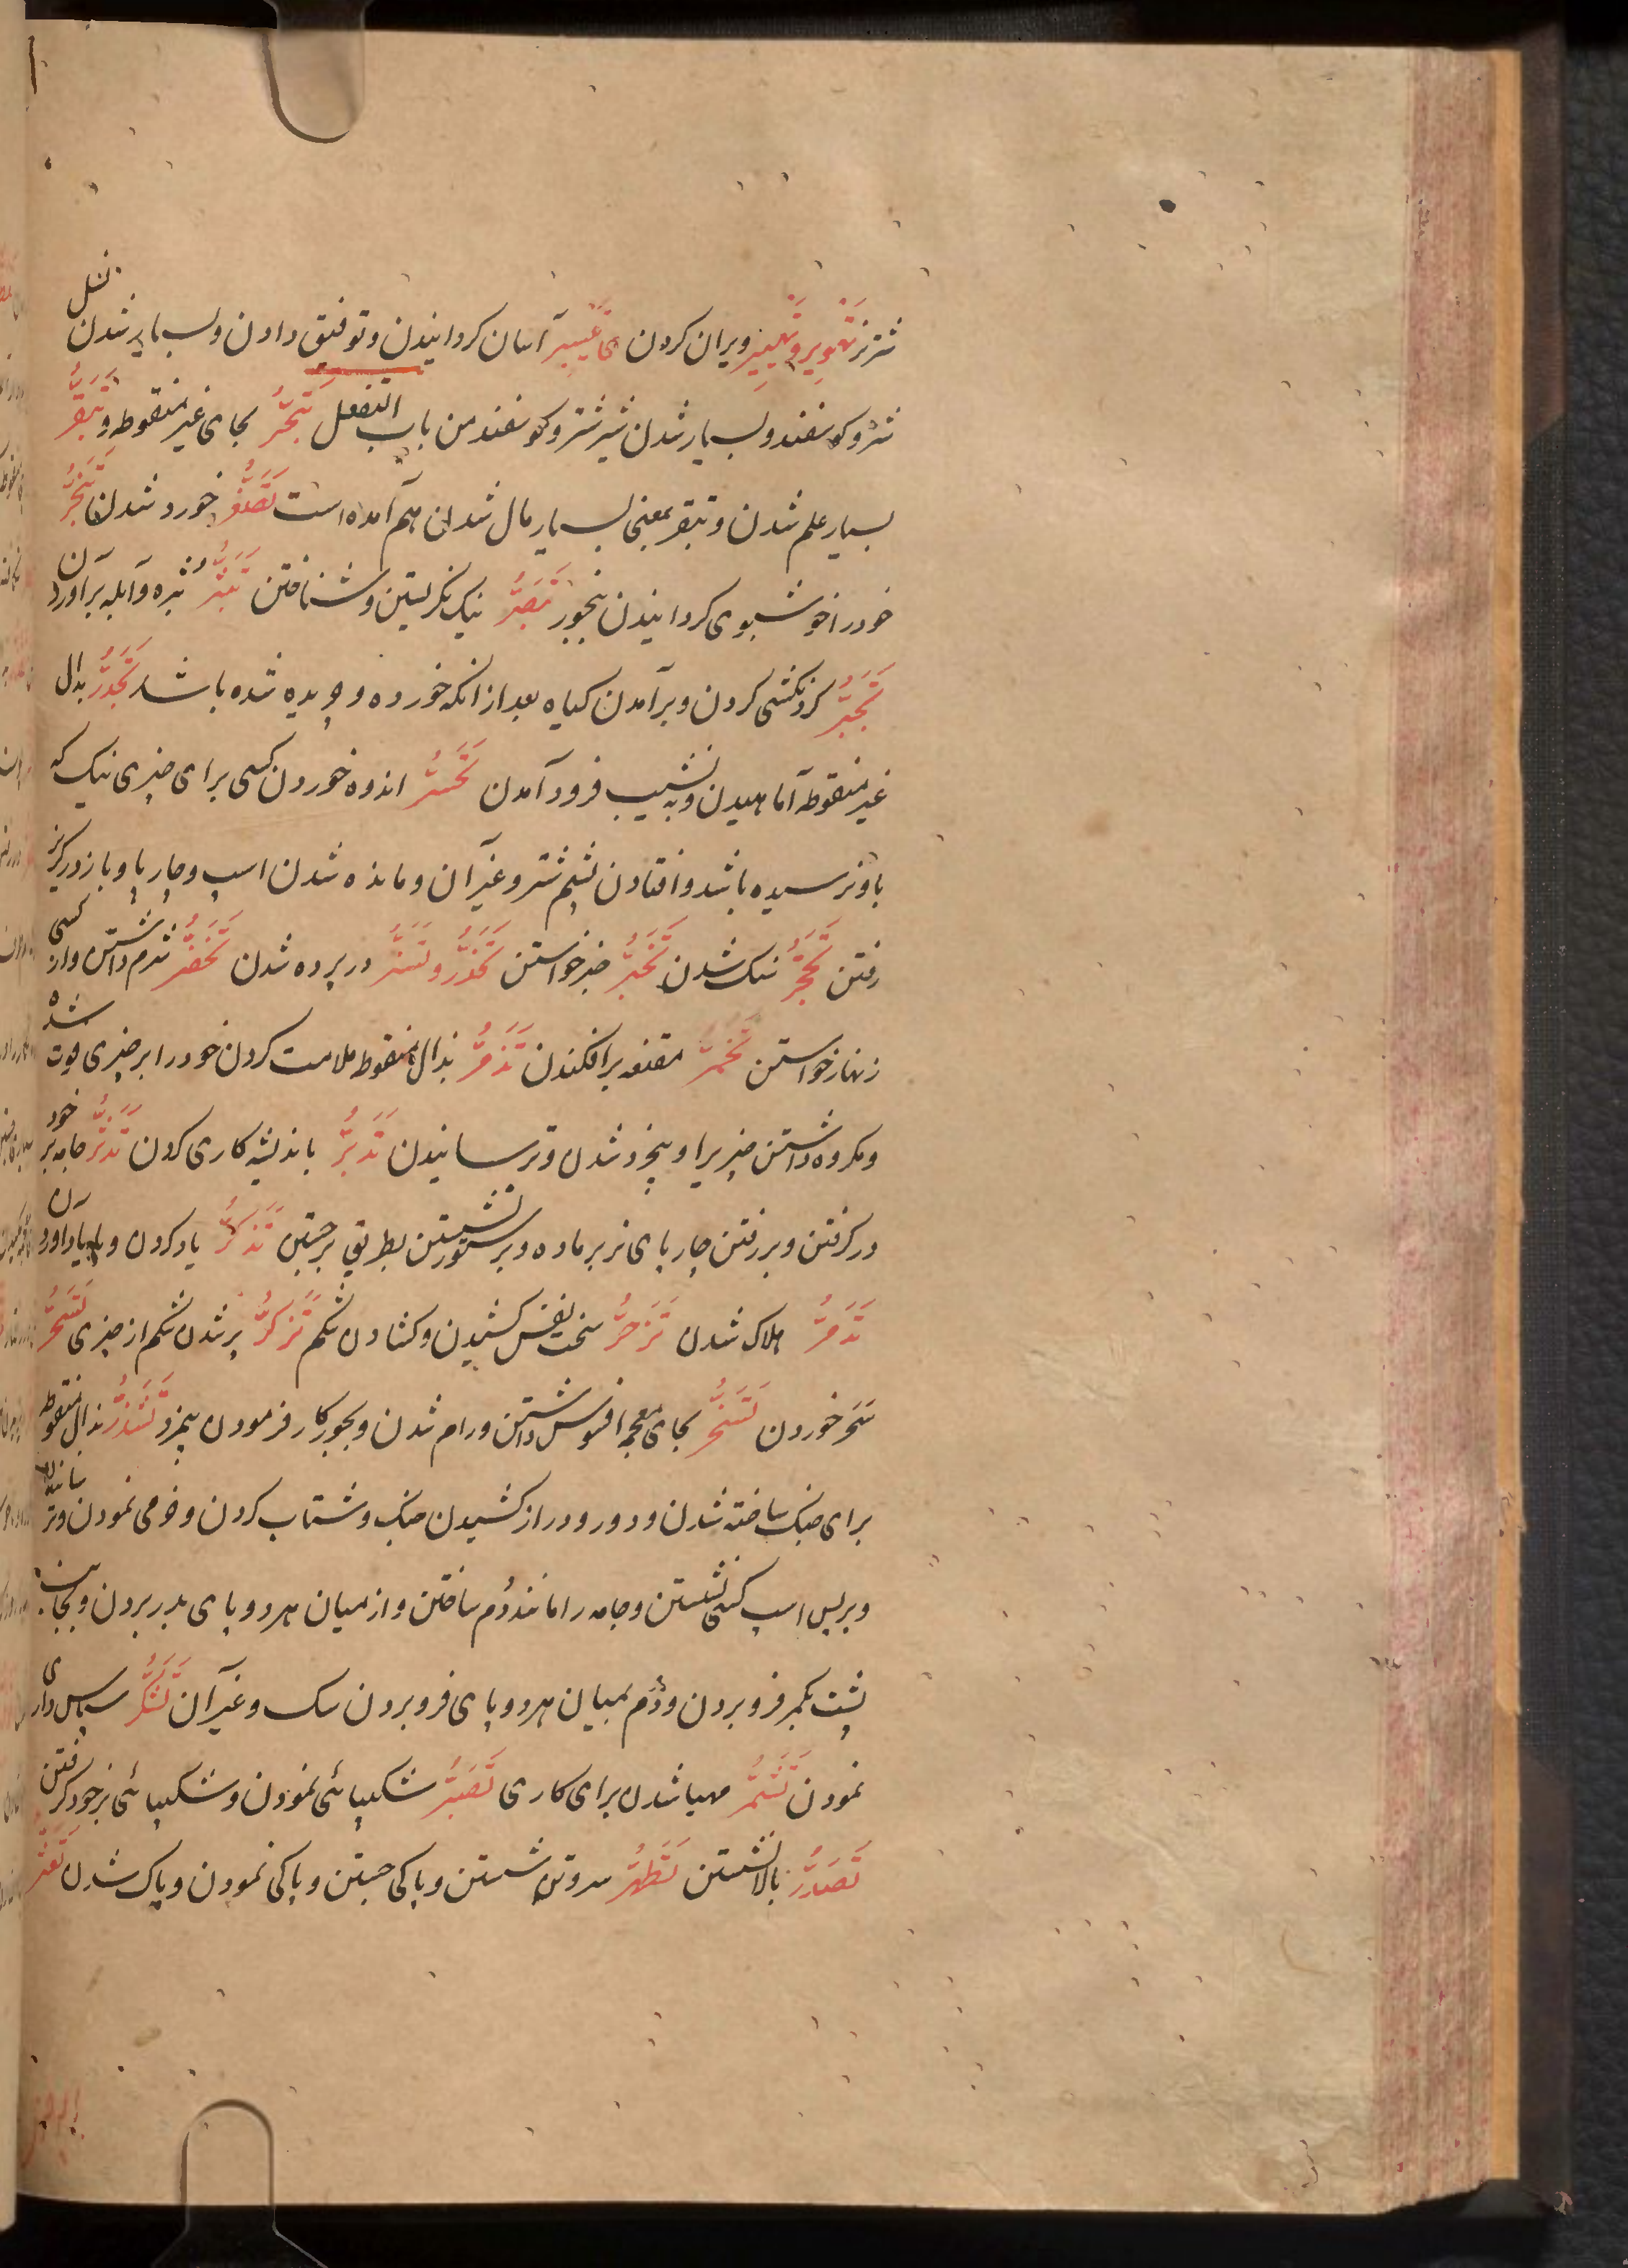 نسل
شتر نر تهویر و تهییر ویران کردن ی تیسیر آسان کردانیدن و توفیق دادن و بسیار شدن
شتر و کوسفند و بسیار شدن شیر شتر و کوسفند من باب التفعل تبحّر بحای غیر منقوطه و تبقّر
بسیار علم شدن و تبقر بمعنی بسیار مال شدن هم آمده است تصغّر خورد شدن تبخّر
خود را خوشبوی کردانیدن ببخور تبصّر نیک نکریستن و شناختن تبثّر بثره و آبله برآوردن
تجبّر کردنکشی کردن و برآمدن کیاه بعد از انکه خورده و چریده شده باشد تحدّر بدال
غیر منقوطه آماهیدن و به نشیب فرود آمدن تحسّر اندوه خوردن کسی برای چیزی نیک که
باو نرسیده باشد و افتادن پشم شتر و غیر آن و مانده شدن اسپ و چارپا و باز در کریز
رفتن تحجّر سنک شدن تخبّر خبر خواستن تخدّر و تستّر در پرده شدن تخفّر شرم داشتن و از کسی
زنهار خواستن تخمّر مقنعه برافکندن تذمّر بذال منقوطه ملامت کردن خود را بر چیزی فوت شده
و مکروه داشتن چیزیرا و بیخود شدن و ترسانیدن تدبّر باندیشه کاری کردن تدثّر جامه بر خود
در کرفتن و بر رفتن چارپای نر بر ماده و بر ستور نشستن بطریق برجستن تذکّر یاد کردن و با یاد آوردن
تدمّر هلاک شدن تزحّر سخت نفس کشیدن و کشادن شکم تزکّر پر شدن شکم از چیزی تسحّر
سحر خوردن تسخّر بخای معجمه افسوس داشتن و رام شدن و بجور کار فرمودن بیمزد تشذّر بذال منقوطه
برای جنک ساخته شدن و دور و دراز کشیدن جنک و شتاب کردن و خرمی نمودن و ترسانیدن
و بر پس اسپ کسی نشستن و جامه را مانند دُم ساختن و از میان هر دو پای بدر بردن و بجانب
پشت بکمر فرو بردن و دُم بمیان هر دو پای فرو بردن سک و غیر آن تشکّر سپاس داری
نمودن تشمّر مهیا شدن برای کاری تصبّر شکیبائی نمودن و شکیبائی بر خود کرفتن
تصدّر بالا نشستن تطهّر سر و تن شستن و پاکی جستن و پاکی نمودن و پاک شدن تعثّر